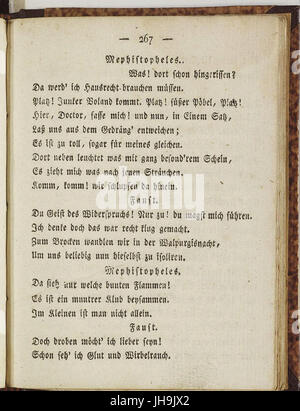 — 267 —
Mephistopheles.
Was! dort schon hingerissen?
Da werd' ich Hausrecht brauchen müssen.
Platz! Junker Voland kommt. Platz! süßer Pöbel, Platz!
Hier, Doctor, fasse mich! und nun, in Einem Satz,
Laß uns aus dem Gedräng' entweichen;
Es ist zu toll, sogar für meines gleichen.
Dort neben leuchtet was mit ganz besond'rem Schein,
Es zieht mich was nach jenen Sträuchen.
Komm, komm! wir schlupfen da hinein.
Faust.
Du Geist des Widerspruchs! Nur zu! du magst mich führen.
Ich denke doch das war recht klug gemacht.
Zum Brocken wandlen wir in der Walpurgisnacht,
Um uns beliebig nun hieselbst zu isoliren.
Mephistopheles.
Da sieh nur welche bunten Flammen!
Es ist ein muntrer Klub beysammen.
Im Kleinen ist man nicht allein.
Faust.
Doch droben möcht' ich lieber seyn!
Schon seh' ich Glut und Wirbelrauch.
alamy
JH9JX2